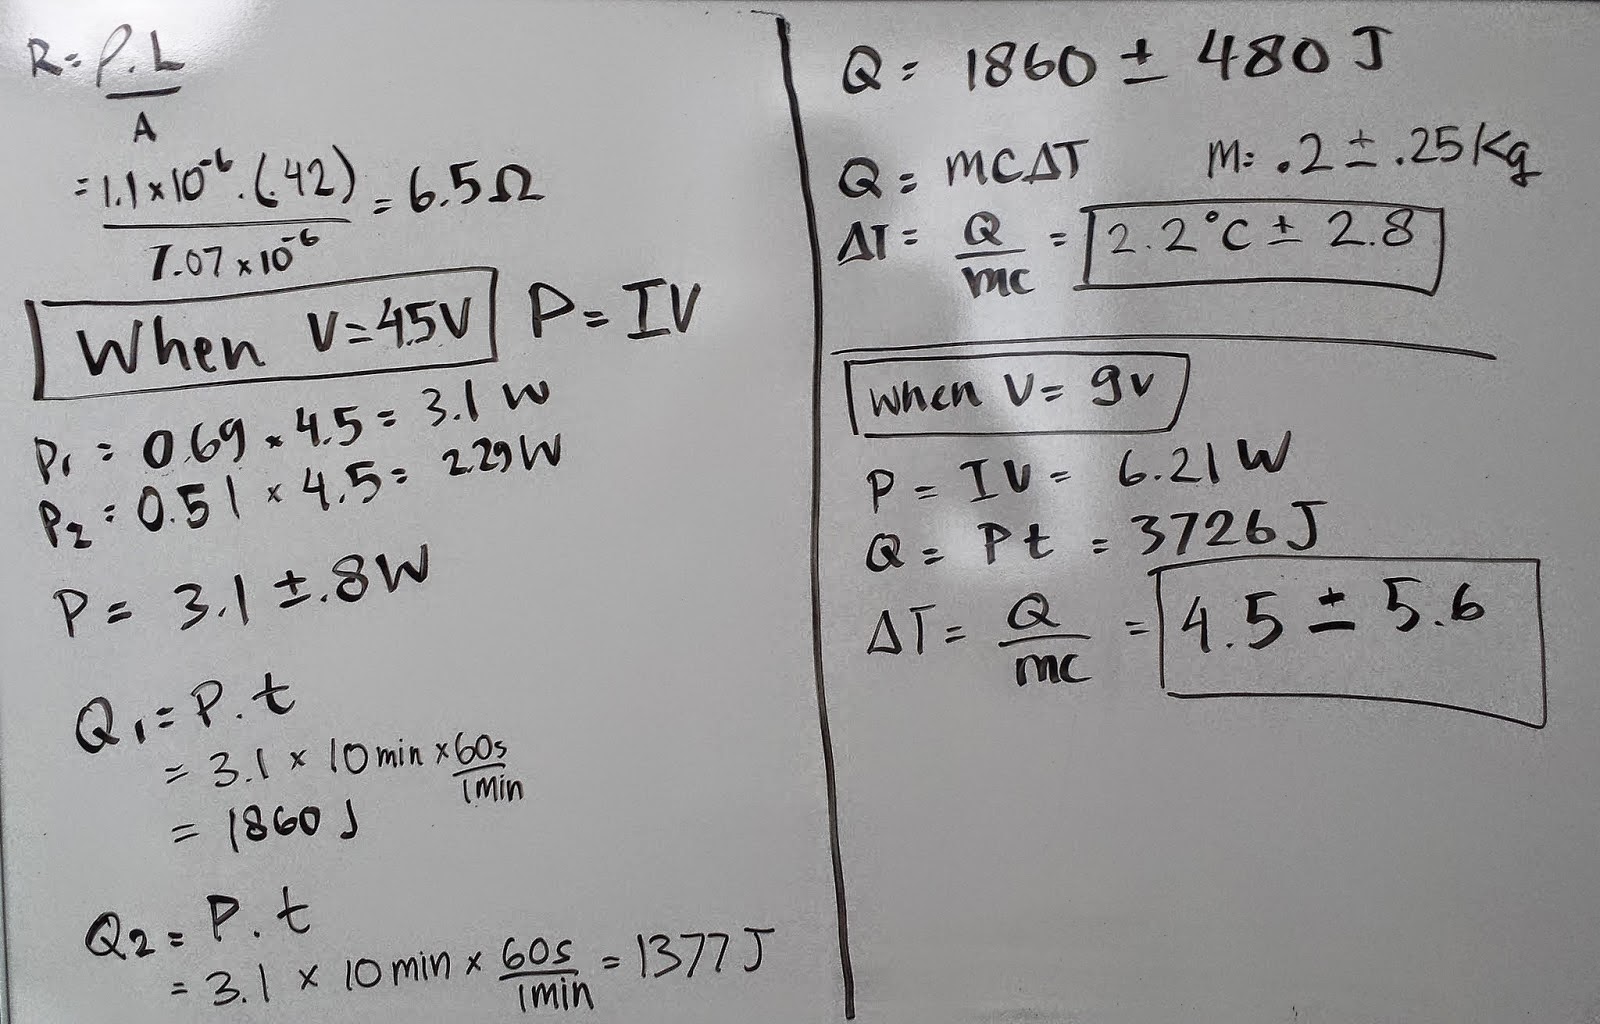 R = ρ.L / A
= 1.1 × 10⁻⁶ . (.42) / 7.07 × 10⁻⁶ = 6.5 Ω
When V = 4.5V P = IV
P₁ = 0.69 × 4.5 = 3.1 W
P₂ = 0.51 × 4.5 = 2.29 W
P = 3.1 ± .8 W
Q₁ = P.t
= 3.1 × 10 min × 60s / 1 min
= 1860 J
Q₂ = P.t
= 3.1 × 10 min × 60s / 1 min = 1377 J
Q = 1860 ± 480 J
Q = mCΔT M = .2 ± .25 Kg
ΔT = Q / mc = 2.2°C ± 2.8
when V = 9v
P = IV = 6.21 W
Q = Pt = 3726 J
ΔT = Q / mc = 4.5 ± 5.6